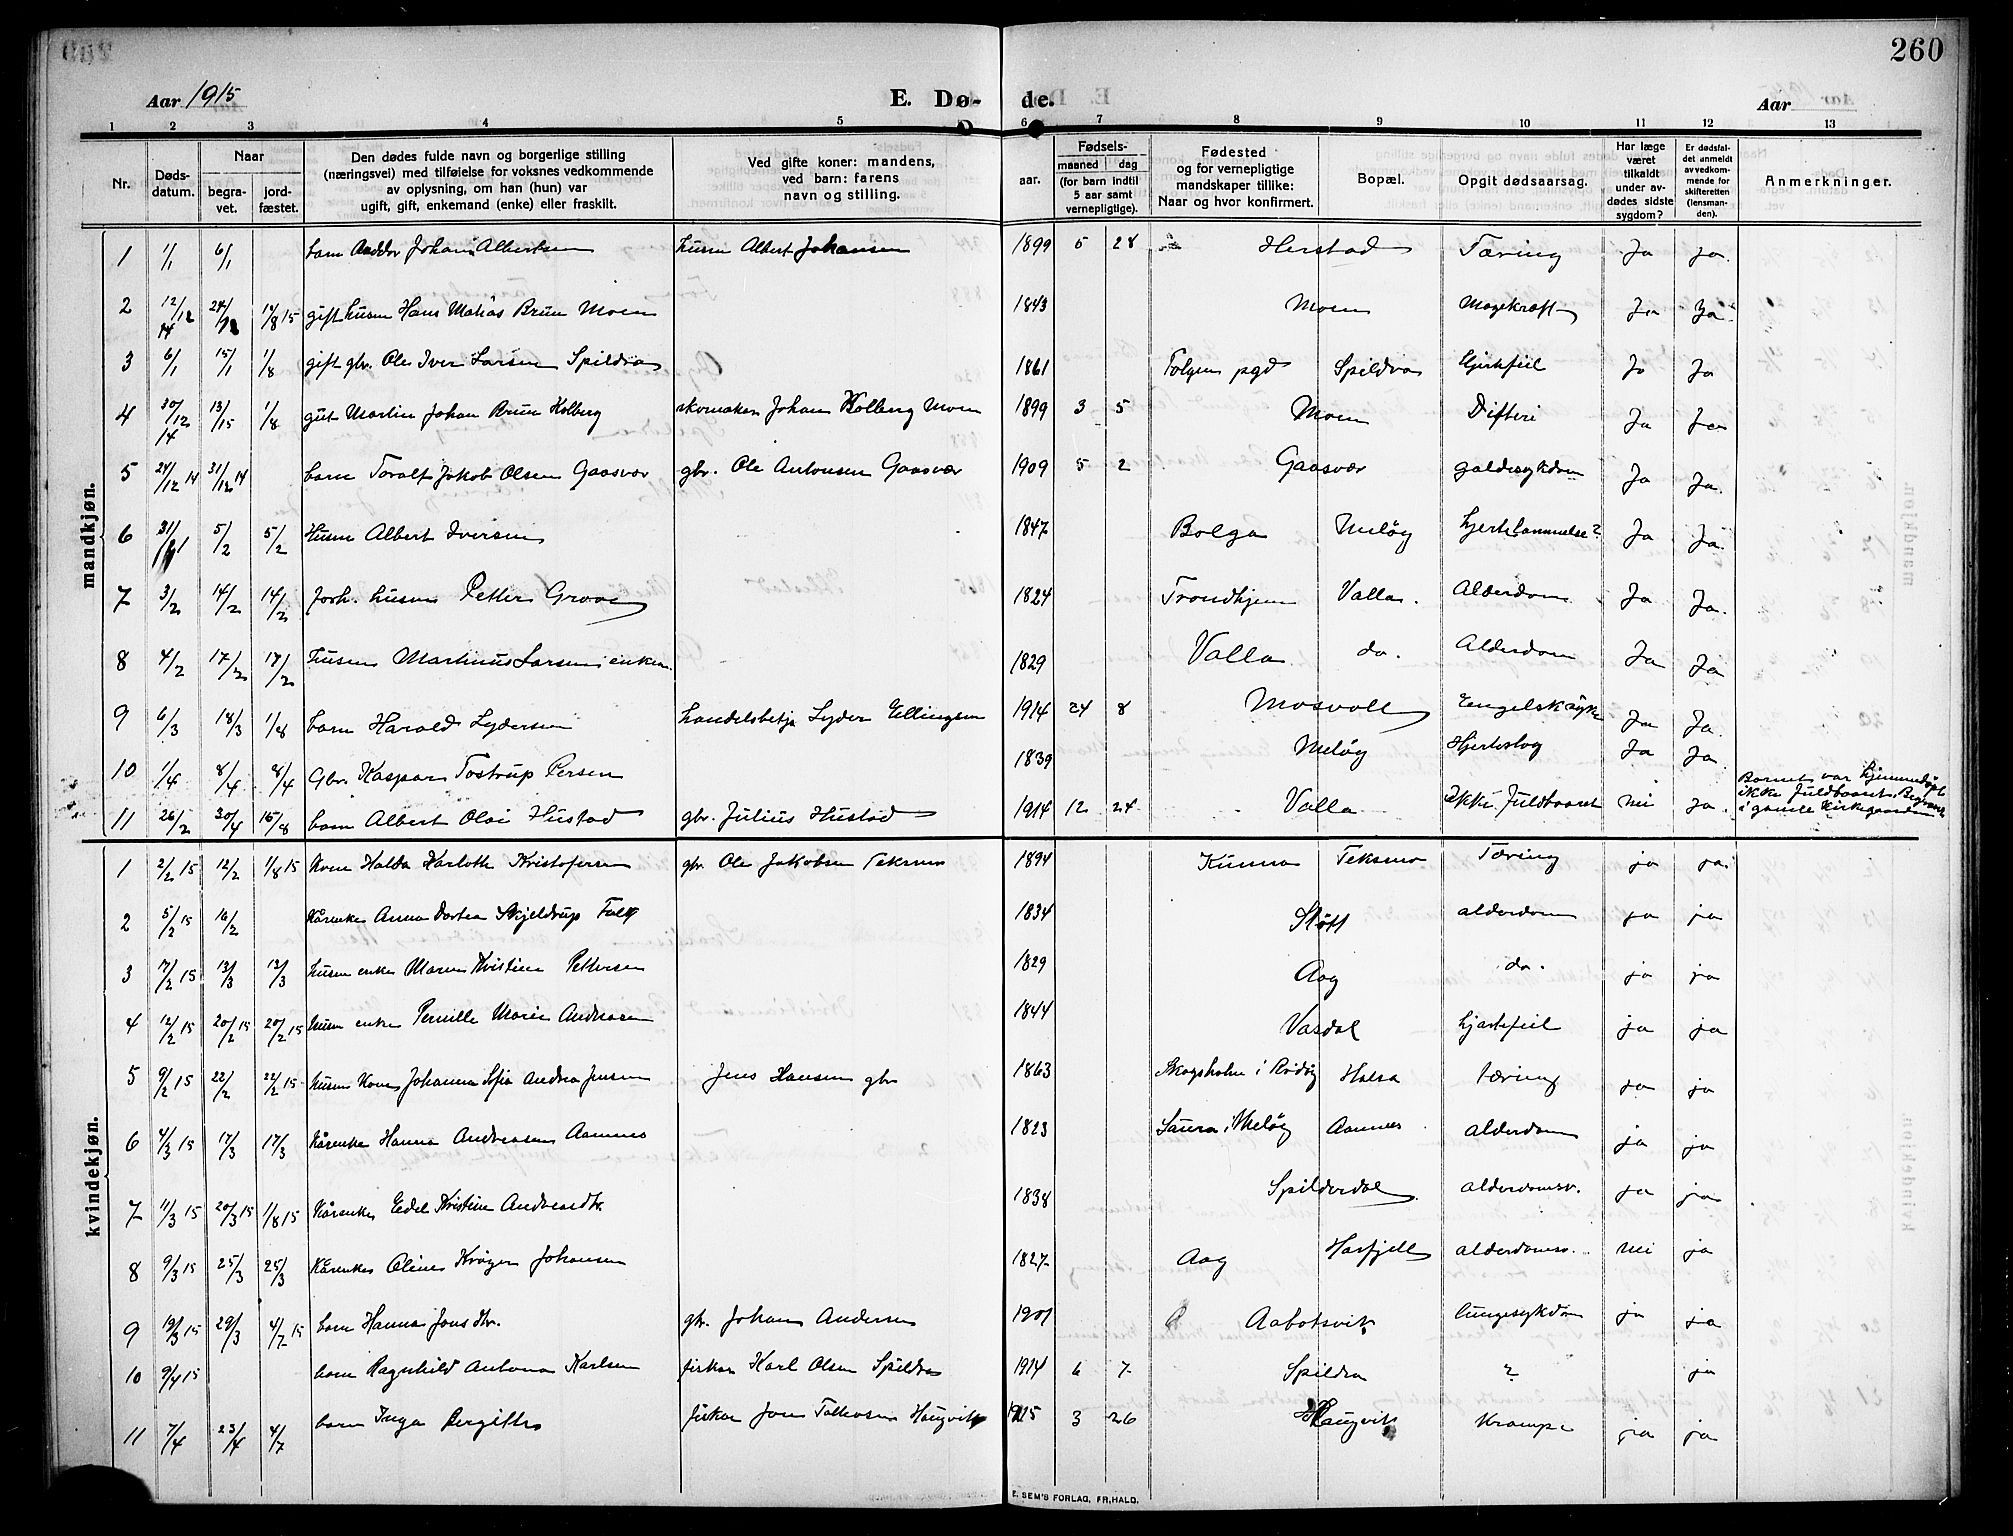 260
Aar 1915
E. Dø- de.
Aar
1 2 3 4 5 6 7 8 9 10 11 12 13
Nr.
Døds-
datum.
Naar
begra-
vet.
jord-
fæstet.
Den dødes fulde navn og borgerlige stilling
(næringsvei) med tilføielse for voksnes vedkommende
av oplysning, om han (hun) var
ugift, gift, enkemand (enke) eller fraskilt.
Ved gifte koner: mandens,
ved barn: farens
navn og stilling.
aar.
Fødsels-
maaned dag
(for barn indtil
5 aar samt
vernepligtige).
Fødested
og for vernepligtige
mandskaper tillike:
Naar og hvor konfirmert.
Bopæl.
Opgit dødsaarsag.
Har læge
været
tilkaldt
under av-
dødes sidste
sygdom?
Er dødsfal-
det anmeldt
av vedkom-
mende for
skifteretten
(lensman-
den).
Anmerkninger.
mandkjøn.
1 1/1 6/1 barn Johan Albertsen husm Albert Johansen 1899 5 28 Herstad Tæring Ja ja
2 12/12 14 24/12 14/8 15 gift husm Hans Matias Brun Moen 1843 Moen Mavekræft Ja Ja
3 6/1 15/1 1/8 gift gbr. Ole Iver Larsen Spildra 1861 Folgen pgd Spildra Hjertefeil Ja Ja
4 30/12 14 13/15 1/8 gut Martin Johan Brun Kolberg skomaker Johan Kolberg Moen 1899 3 5 Moen Difteri Ja Ja
5 24/12 14 31/12 14 barn Toralf Jakob Olsen Gaasvær gbr. Ole Antonsen Gaasvær 1909 5 2 Gaasvær galdesykdom Ja Ja.
6 31/1 5/2 5/2 Husm Albert Iversen 1847 Bolga Meløy hjertelammelse? Ja Ja.
7 3/2 14/2 14/2 forh. husm Petter Grove 1824 Trondhjem Valla. Alderdom Ja Ja.
8 4/2 17/2 17/2 husm Martinus Larsen enkem. 1829 Valla do. Alderdom Ja Ja
9 6/3 18/3 1/8 barn Harald Lydersen handelsbetj Lyder Ellingsen 1914 24 8 Mosvoll Engelsk syke Ja Ja.
10 1/4 8/4 8/4 Gbr. Kaspar Tostrup Persen 1839 Meløy Hjerteslag Ja Ja.
11 26/2 30/4 15/8 barn Albert Olai Hustad gbr. Julius Hustad 1914 12 24 Valla Ikke fuldbaaret nei Ja. Barnet var hjemmedøpt
ikke fuldbaaret. Begravet
i gamle Kirkegaarden
kvindekjøn.
1 2/2 15 12/2 1/8 15 Kone Halda Karlotte Kristofersen gbr Ole Jakobsen Teksmo 1894 Kunna Teksmo Tæring ja ja
2 5/2 15 16/2 Kårenke Anna Dortea Skjeldrup Falk 1834 Støtt alderdom ja ja
3 17/2 15 13/3 13/3 husm enke Maren Kristine Pettersen 1829 Aag do. ja ja
4 12/2 15 20/2 15 20/2 15 husm enke Pernille Marie Andreasen 1844 Vasdal hjertefeil ja ja
5 9/2 15 22/2 22/2 15 husm Kone Johanna Sofia Andrea Jensen Jens Hansen gbr 1863 Skogsholm i Rødøy Halsa tæring ja ja
6 4/3 15 17/3 17/3 Kårenke Hanna Andreasen Aamnes 1823 Saura i Meløy Aamnes alderdom ja ja
7 11/3 15 20/3 15 1/8 15 Kårenke Edel Kristine Andreasdtr. 1838 Spilderdal alderdomsv. ja ja
8 9/3 15 25/3 25/3 Kårenke Oline Krøger Johansen 1827 Aag Harfjell alderdomsv. nei ja
9 19/3 15 29/3 4/7 15 barn Hanna Jensdtr. gbr. Johan Andersen 1901 Aabotsvik lungesykdom ja ja
10 9/4 15 barn Ragnhild Antona Karlsen fisker Karl Olsen Spildra 1914 6 7 Spildra ? ja
11 7/4 23/4 4/7 barn Inga Bergitte fisker Jens Haugvik 1915 3 26 Haugvik Krampe ja ja
E. SEM'S FORLAG, FR.HALD.